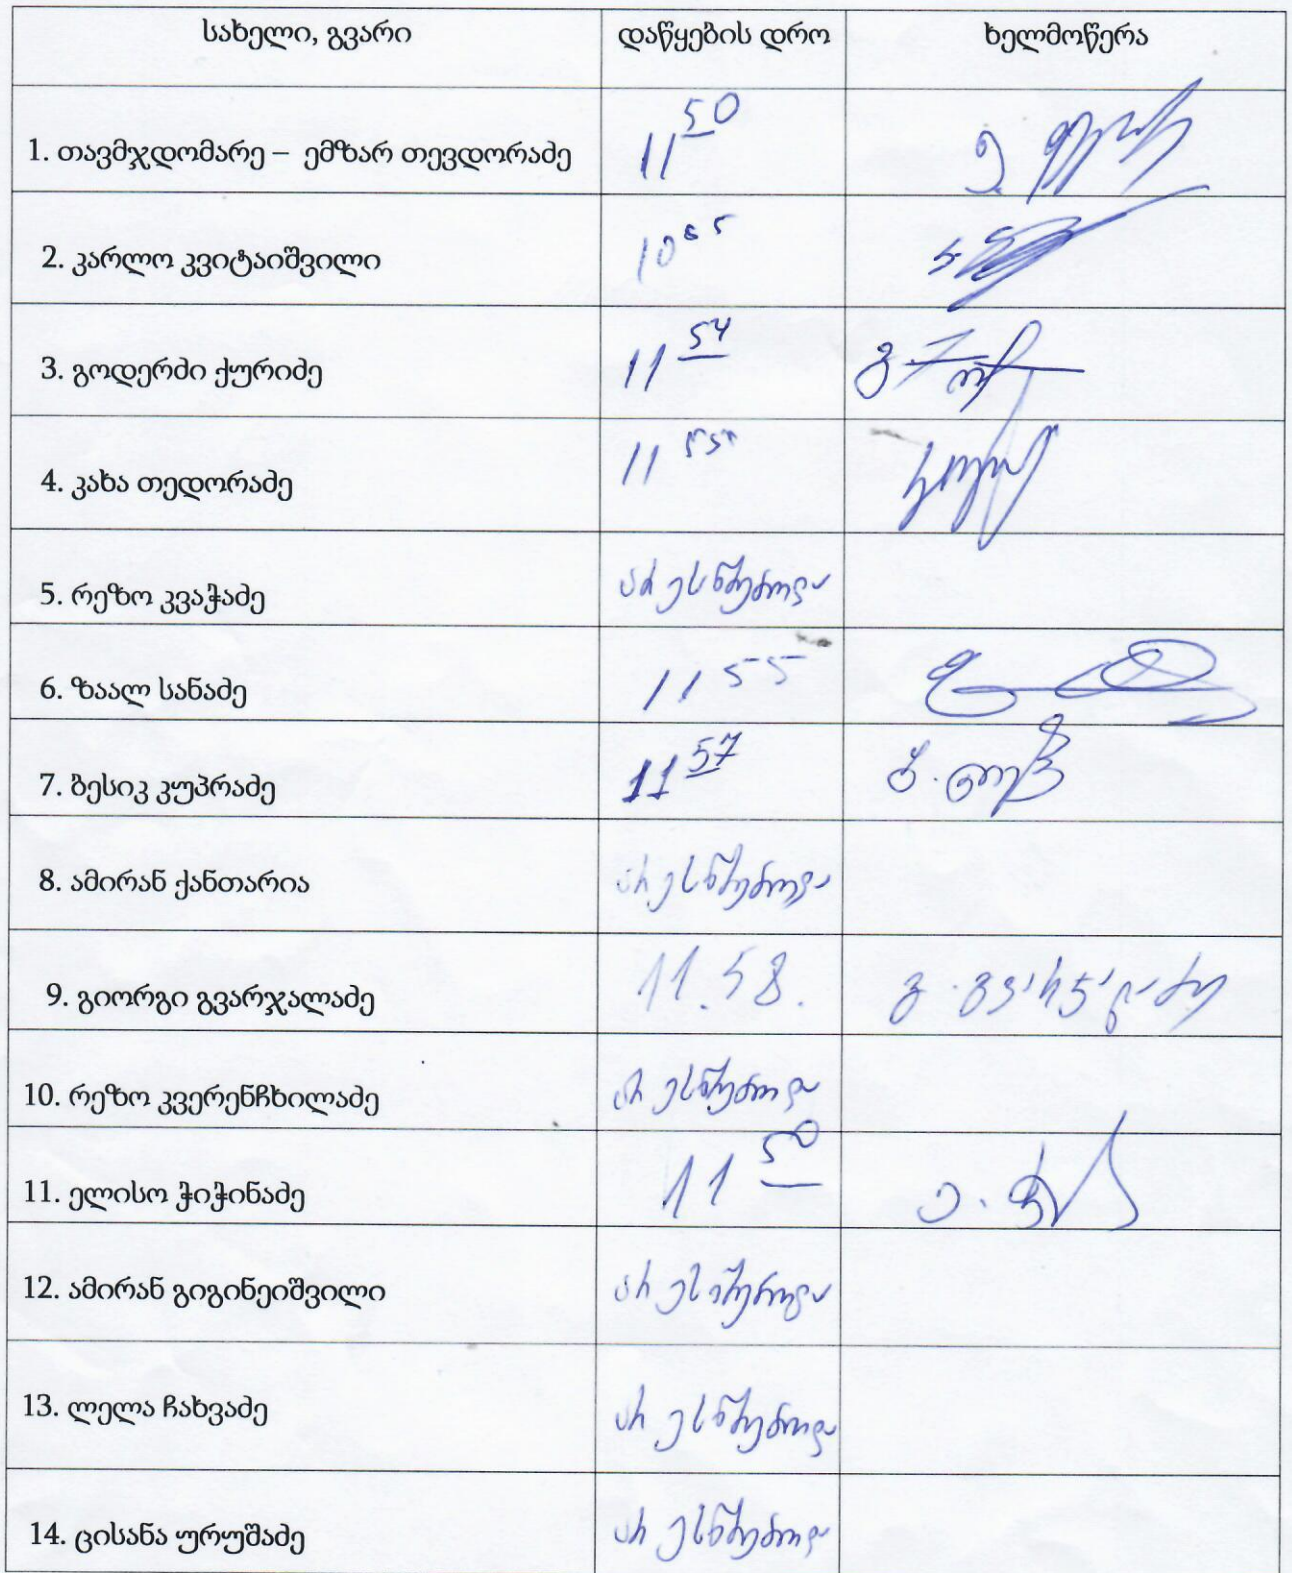 სახელი, გვარი დაწყების დრო ხელმოწერა
1. თავმჯდომარე – ემზარ თევდორაძე 11 50
2. კარლო კვიტაიშვილი
3. გოდერძი ქურიძე 11 54
4. კახა თედორაძე 11 55
5. რეზო კვაჭაძე არ ესწრებოდა
6. ზაალ სანაძე 11 55
7. ბესიკ კუპრაძე 11 57
8. ამირან ქანთარია არ ესწრებოდა
9. გიორგი გვარჯალაძე 11.58. გ. გვარჯალაძე
10. რეზო კვერენჩხილაძე არ ესწრებოდა
11. ელისო ჭიჭინაძე 11 50
12. ამირან გიგინეიშვილი არ ესწრებოდა
13. ლელა ჩახვაძე არ ესწრებოდა
14. ცისანა ურუშაძე არ ესწრებოდა